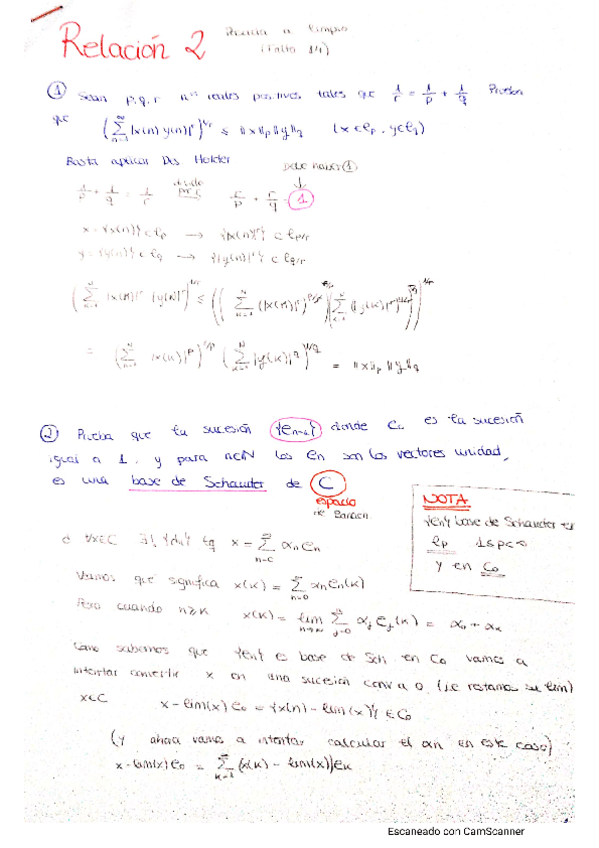 Relación 2
Pasada a limpio
(Falta 14)
① Sean p,q,r nos reales positivos tales que 1/r = 1/p + 1/q Prueba
que (∑_{n=1}^∞ |x(n) y(n)|^r)^{1/r} ≤ ||x||_p ||y||_q (x∈ℓp, y∈ℓq)
Basta aplicar Des Hölder
Debe haber ①
1/p + 1/q = 1/r ⟹ r/p + r/q = 1
x={x(n)}∈ℓp → {|x(n)|^r} ∈ ℓp/r
y={y(n)}∈ℓq → {|y(n)|^r} ∈ ℓq/r
= (∑ |x(n)|^p)^{1/p} (∑ |y(n)|^q)^{1/q} = ||x||_p ||y||_q
② Prueba que la sucesión {en-1} donde e0 es la sucesión
igual a 1, y para n∈N los en son los vectores unidad,
es una base de Schauder de C
espacio
de Banach
NOTA
{en} base de Schauder en
ℓp 1≤p<∞
y en C0
¿ ∀x∈C ∃! {αn} tq x = ∑_{n=0}^∞ αn en
Veamos que significa x(k) = ∑_{n=0}^∞ αn en(k)
Pero cuando n≥k x(k) = lim_{n→∞} ∑_{j=0}^n αj ej(k) = α0 + αk
Como sabemos que {en} es base de Sch en C0 vamos a
intentar convertir x en una sucesión conv a 0 (i.e restamos su lim)
x∈C x-lim(x) e0 = {x(n) - lim(x)} ∈ C0
(Y ahora vamos a intentar calcular el αn en este caso)
x-lim(x) e0 = ∑_{k=1}^∞ (x(k) - lim(x)) ek
Escaneado con CamScanner